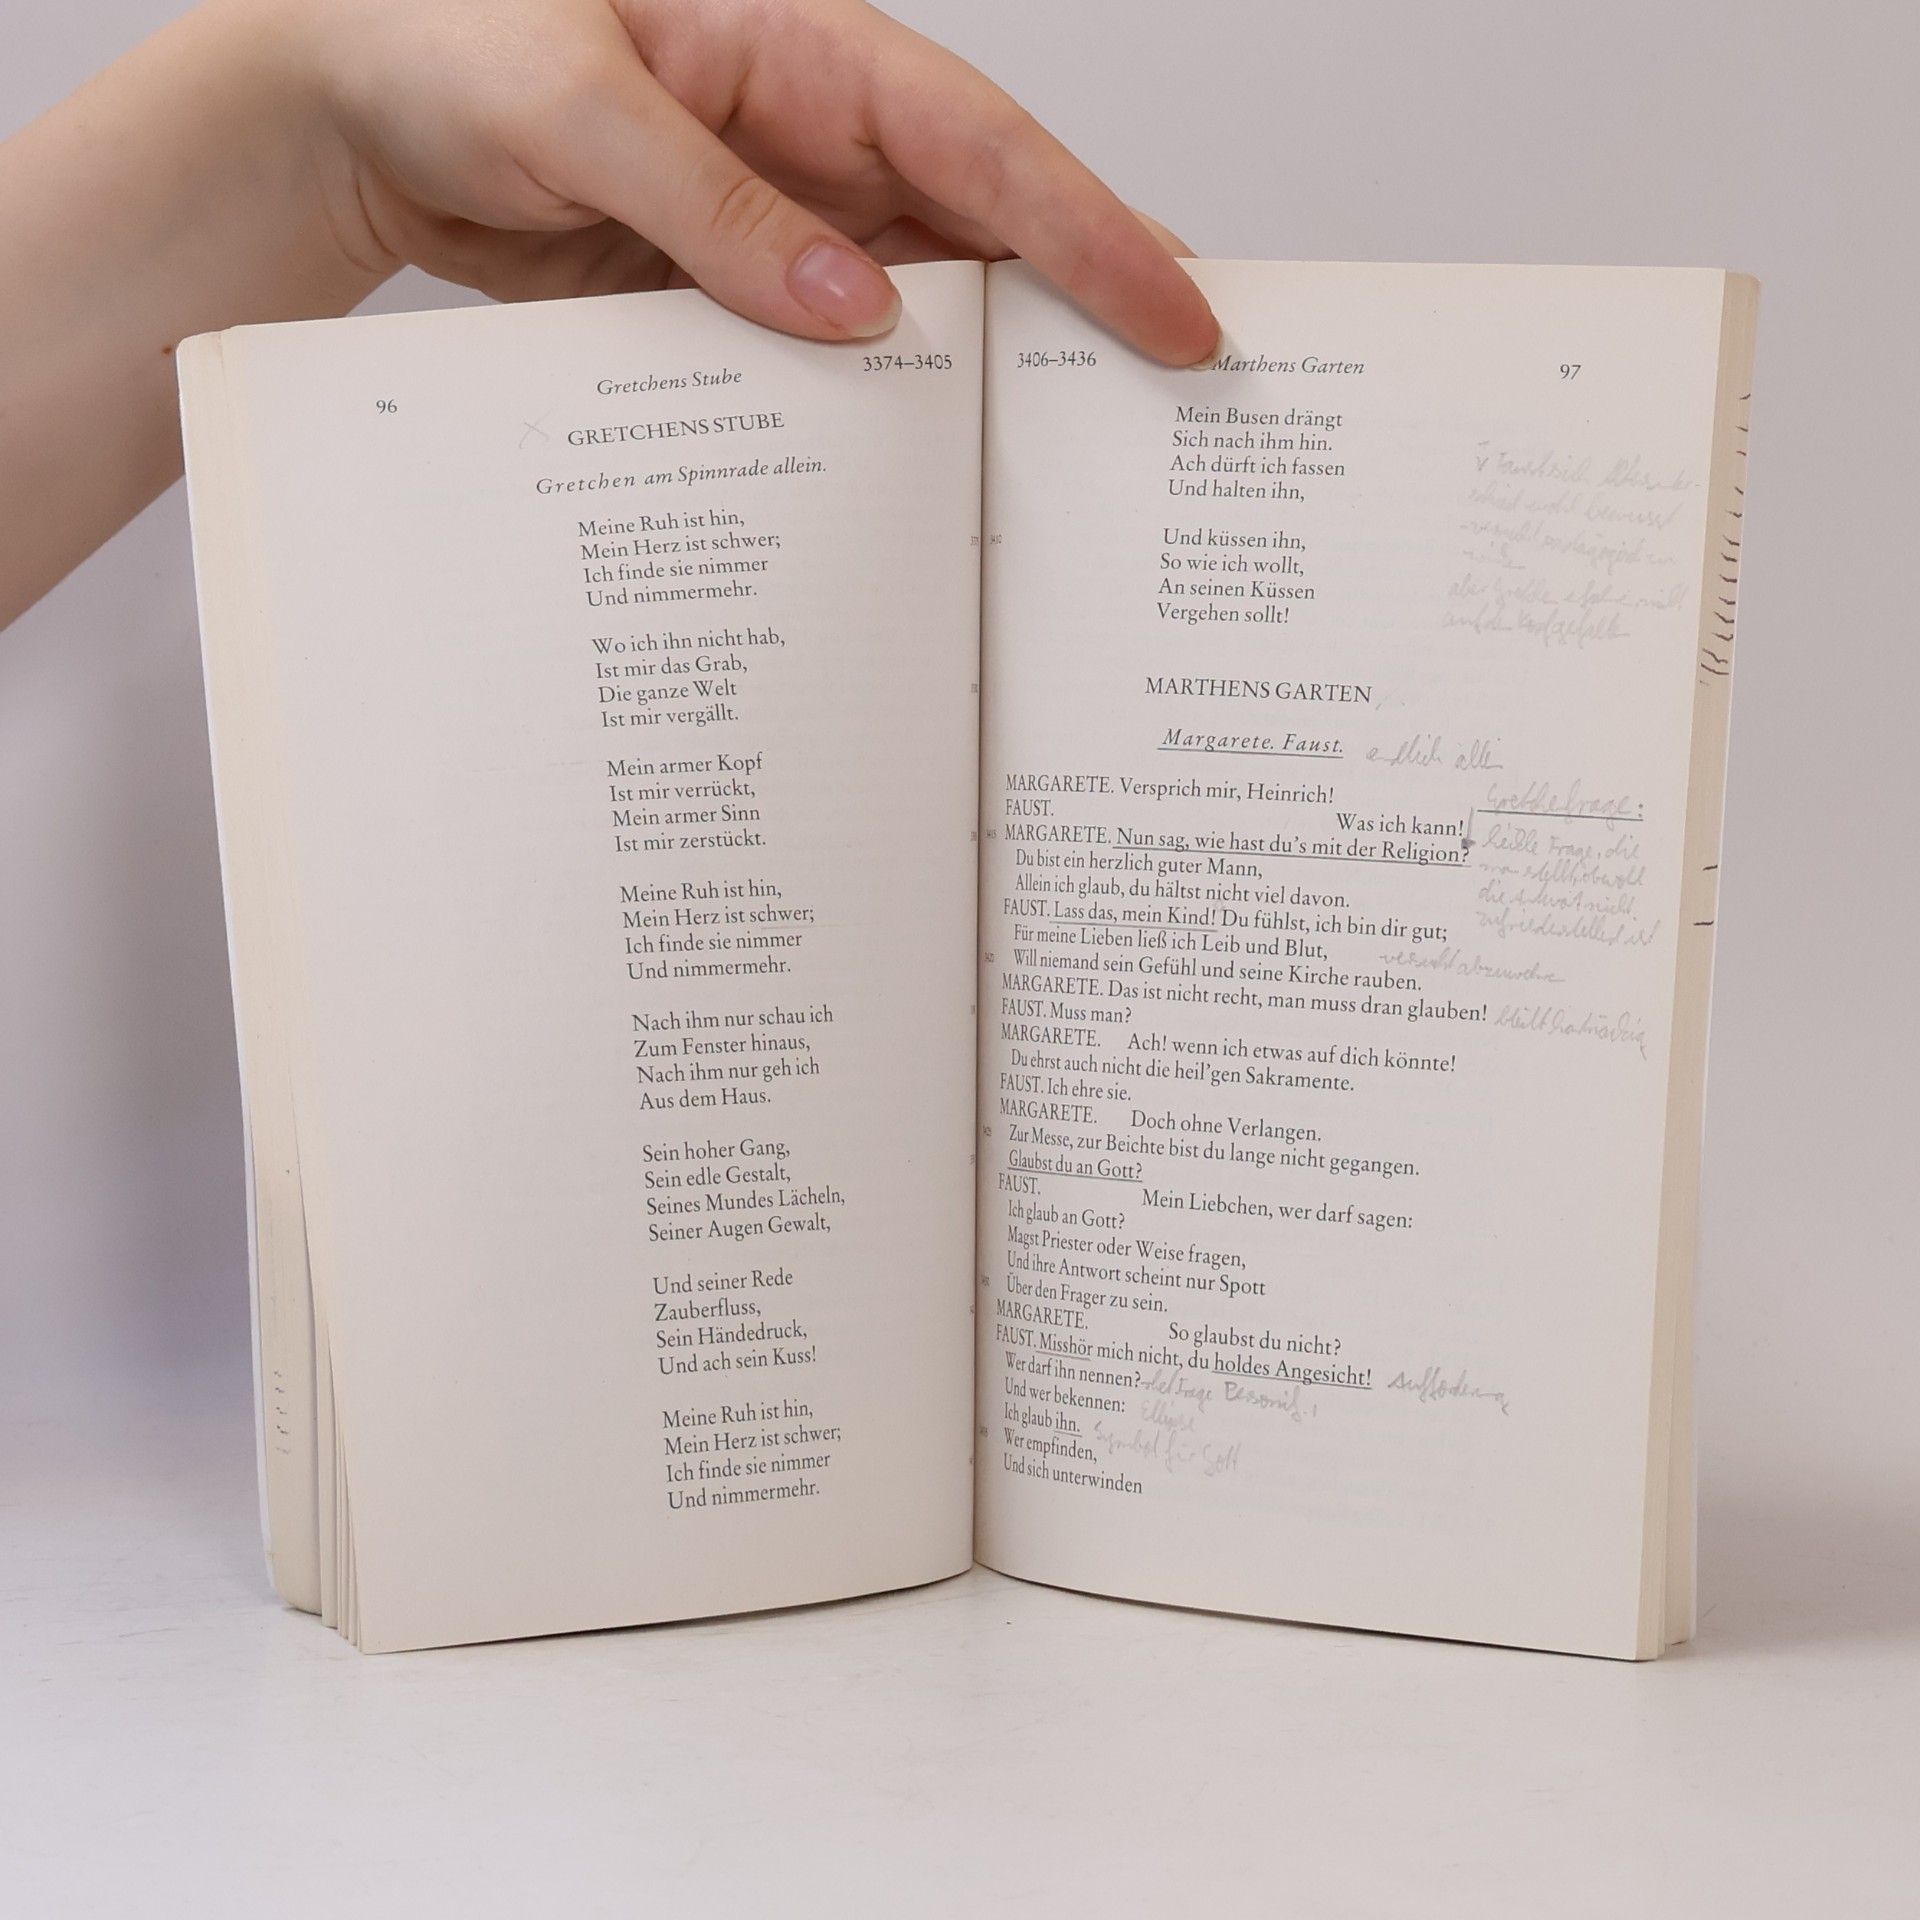 96
Gretchens Stube
3374–3405
GRETCHENS STUBE
Gretchen am Spinnrade allein.
Meine Ruh ist hin,
Mein Herz ist schwer;
Ich finde sie nimmer
Und nimmermehr.
Wo ich ihn nicht hab,
Ist mir das Grab,
Die ganze Welt
Ist mir vergällt.
Mein armer Kopf
Ist mir verrückt,
Mein armer Sinn
Ist mir zerstückt.
Meine Ruh ist hin,
Mein Herz ist schwer;
Ich finde sie nimmer
Und nimmermehr.
Nach ihm nur schau ich
Zum Fenster hinaus,
Nach ihm nur geh ich
Aus dem Haus.
Sein hoher Gang,
Sein edle Gestalt,
Seines Mundes Lächeln,
Seiner Augen Gewalt,
Und seiner Rede
Zauberfluss,
Sein Händedruck,
Und ach sein Kuss!
Meine Ruh ist hin,
Mein Herz ist schwer;
Ich finde sie nimmer
Und nimmermehr.
3406–3436
Marthens Garten
97
Mein Busen drängt
Sich nach ihm hin.
Ach dürft ich fassen
Und halten ihn,
3410 Und küssen ihn,
So wie ich wollt,
An seinen Küssen
Vergehen sollt!
MARTHENS GARTEN
Margarete. Faust.
MARGARETE. Versprich mir, Heinrich!
FAUST. Was ich kann!
Gretchenfrage:
3415 MARGARETE. Nun sag, wie hast du's mit der Religion?
heikle Frage, die
Du bist ein herzlich guter Mann,
Allein ich glaub, du hältst nicht viel davon.
FAUST. Lass das, mein Kind! Du fühlst, ich bin dir gut;
Für meine Lieben ließ ich Leib und Blut,
3420 Will niemand sein Gefühl und seine Kirche rauben.
MARGARETE. Das ist nicht recht, man muss dran glauben! bleibt hartnäckig
FAUST. Muss man?
MARGARETE. Ach! wenn ich etwas auf dich könnte!
Du ehrst auch nicht die heil'gen Sakramente.
FAUST. Ich ehre sie.
MARGARETE. Doch ohne Verlangen.
3425 Zur Messe, zur Beichte bist du lange nicht gegangen.
Glaubst du an Gott?
FAUST. Mein Liebchen, wer darf sagen:
Ich glaub an Gott?
Magst Priester oder Weise fragen,
Und ihre Antwort scheint nur Spott
3430 Über den Frager zu sein.
MARGARETE. So glaubst du nicht?
FAUST. Misshör mich nicht, du holdes Angesicht! Aufforderung
Wer darf ihn nennen? rhet Frage
Und wer bekennen: Ellipse
Ich glaub ihn. Symbol für Gott
3435 Wer empfinden,
Und sich unterwinden